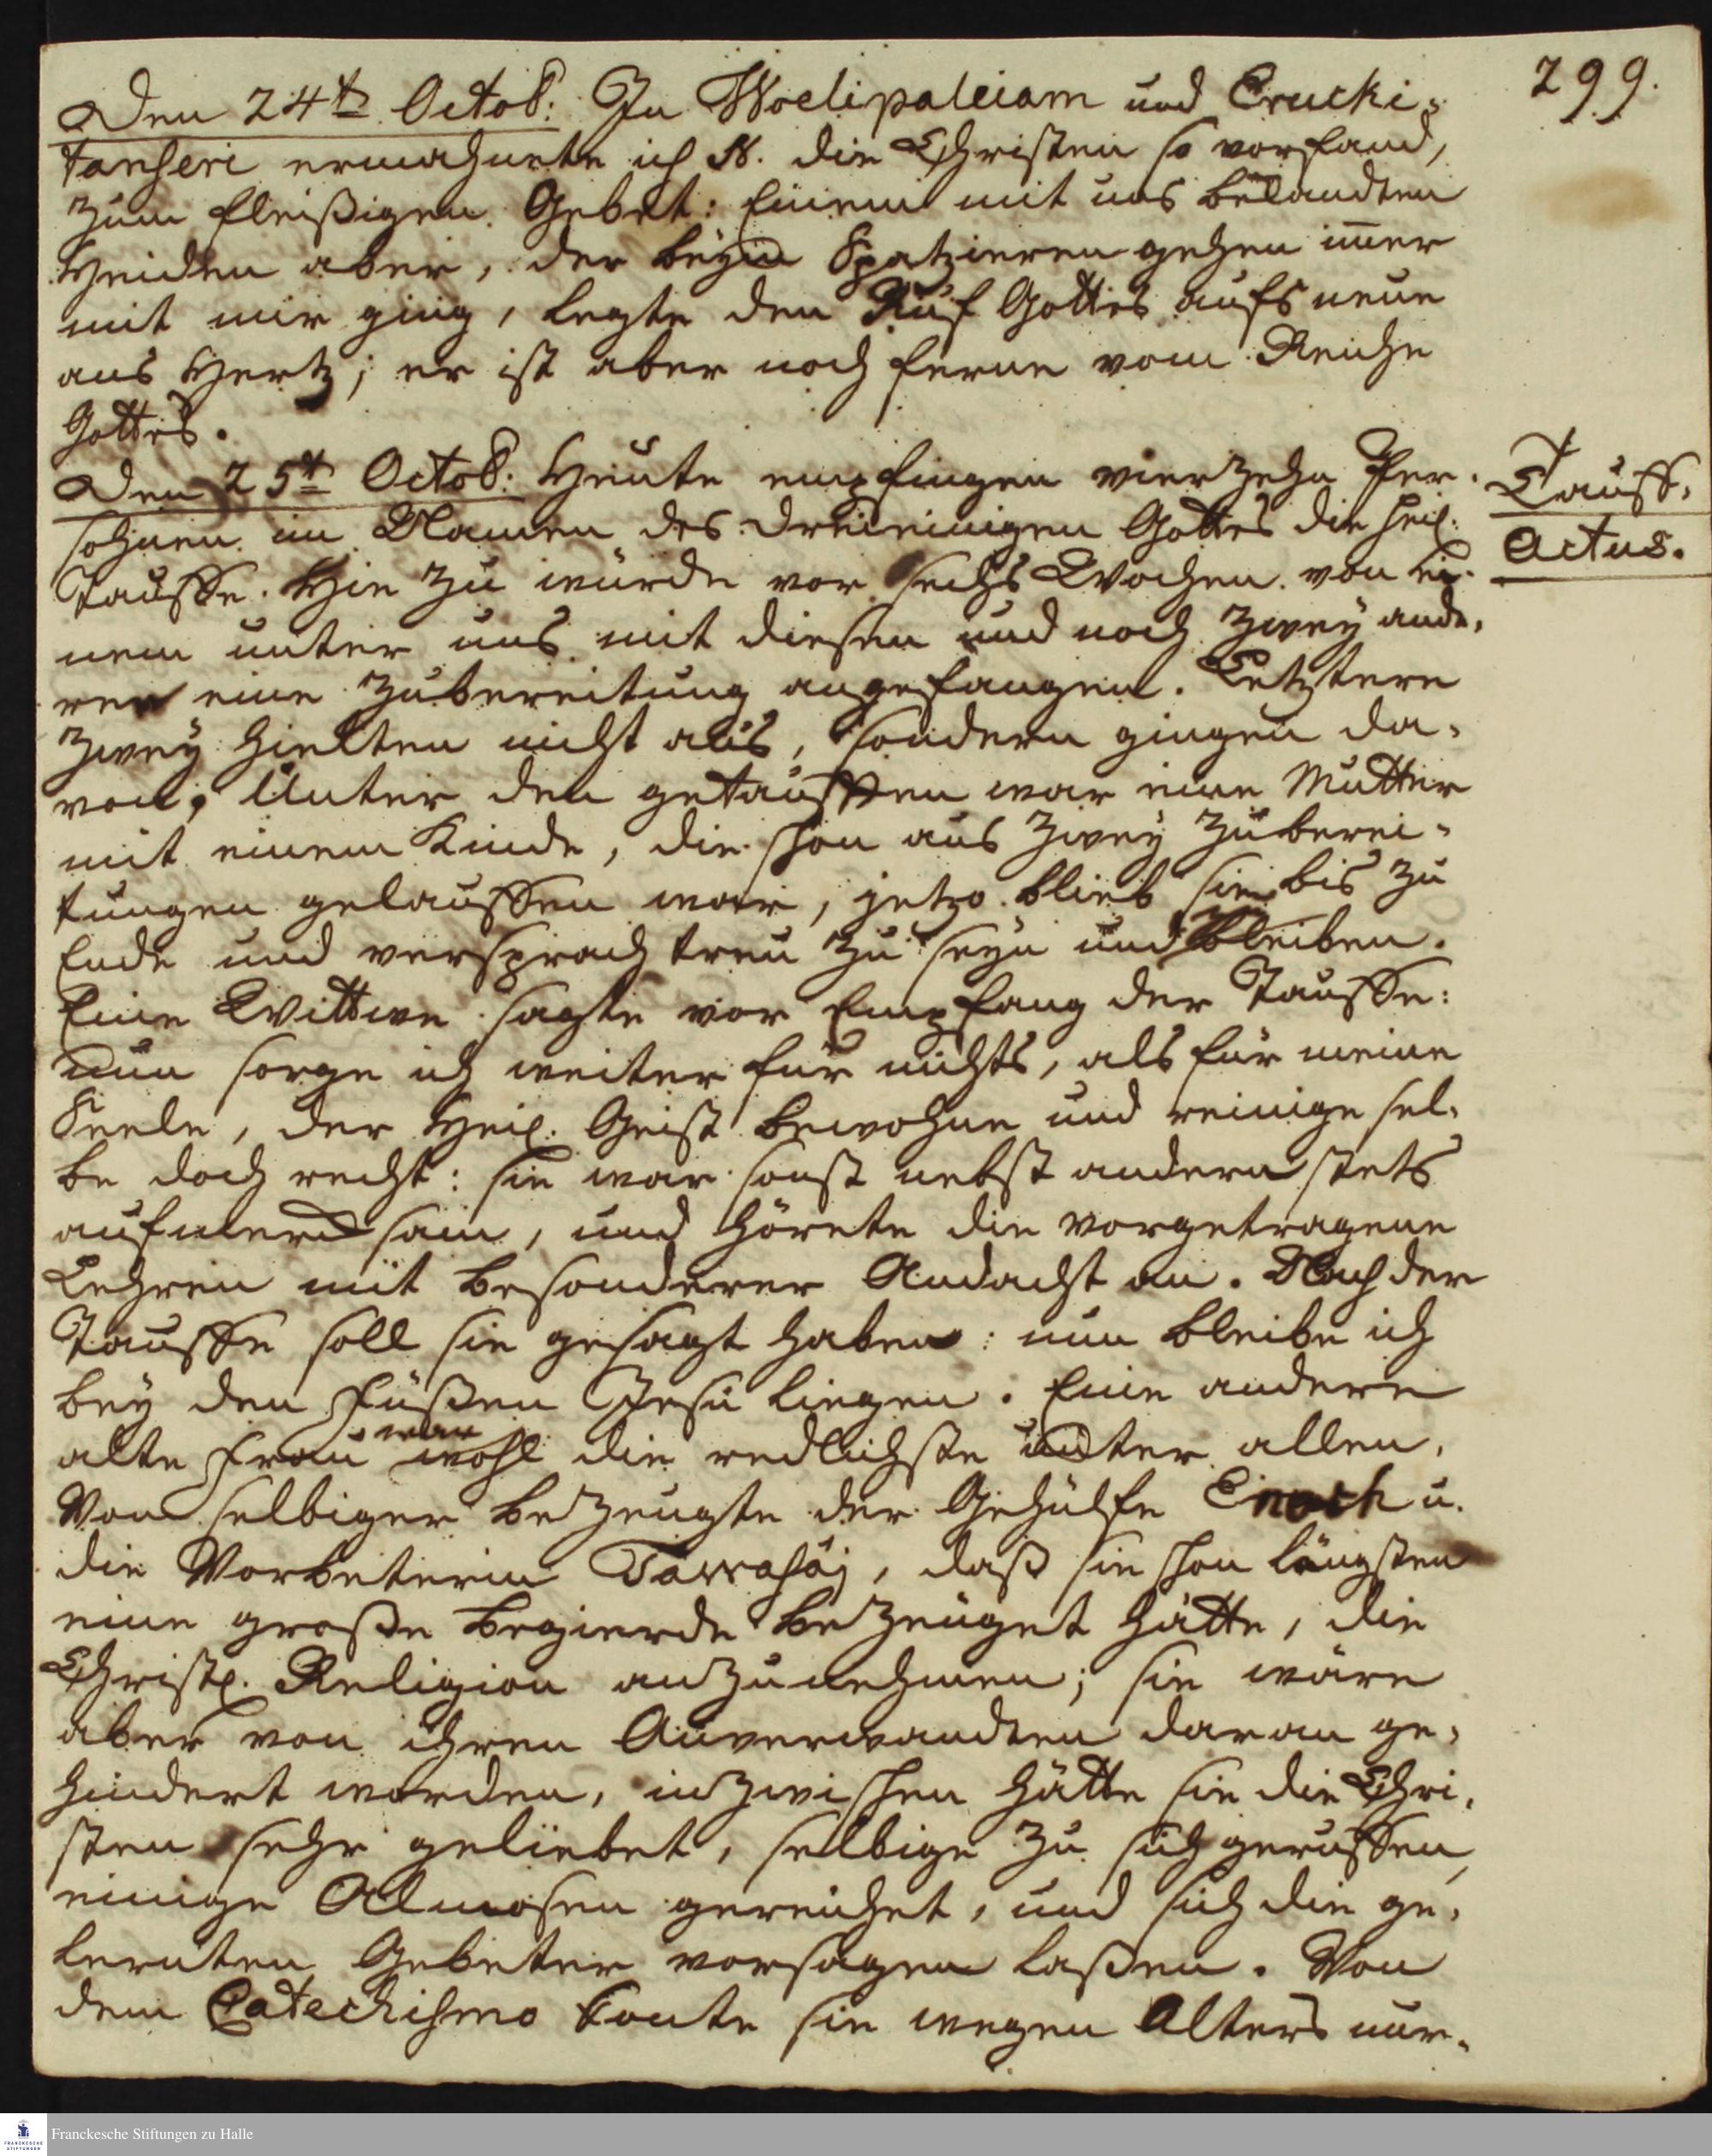 299.
Den 24t. Octob: In Woelipaleiam und Crucki-
tanseri ermahnete ich K. die Christen so vorfand,
zum fleißigen Gebet: Einem mit uns bekandten
Heiden aber, der beym Spatzierengehen immer
mit mir ging, legte den Ruf Gottes aufs neue
ans Hertz; er ist aber noch ferne vom Reiche
Gottes.
Den 25t. Octob: Heute empfingen vierzehn Per-
sohnen im Namen des dreieinigen Gottes die heil.
Tauffe. Hie zu wurde vor sechs Wochen von ei-
nem unter uns mit diesen und noch zwey ande-
ren eine Zubereitung angefangen. Letztere
zwey hielten nicht aus, sondern gingen da-
von; Unter den getaufften war eine Mutter
mit einem Kinde, die schon aus zwey Zuberei-
tungen gelauffen war, jetzo blieb sie bis zu
Ende und versprach treu zu seyn und bleiben.
Eine Wittwe sagte vor Empfang der Tauffe:
nun sorge ich weiter für nichts, als für meine
Seele, der Heil. Geist bewohne und reinige sel-
be doch recht: sie war sonst nebst andern stets
aufmercksam, und hörete die vorgetragene
Lehren mit besonderer Andacht an. Nach der
Tauffe soll sie gesagt haben: nun bleibe ich
bey den Füßen Jesu liegen. Eine andere
alte Frau war wohl die redlichste unter allen.
Von selbiger bezeugte der Gehülfe Enoch u.
die Vorbeterin Tawasäj, daß sie schon längsten
eine große Begierde bezeuget hätte, die
Christl. Religion anzunehmen; sie wäre
aber von ihren Anverwandten daran ge-
hindert worden, inzwischen hätte sie die Chri-
sten sehr geliebet, selbige zu sich geruffen,
einige Almosen gereichet, und sich die ge-
lernten Gebeter vorsagen laßen. Von
dem Catechismo konte sie wegen Alters nur
Tauff-
Actus.
Franckesche Stiftungen zu Halle